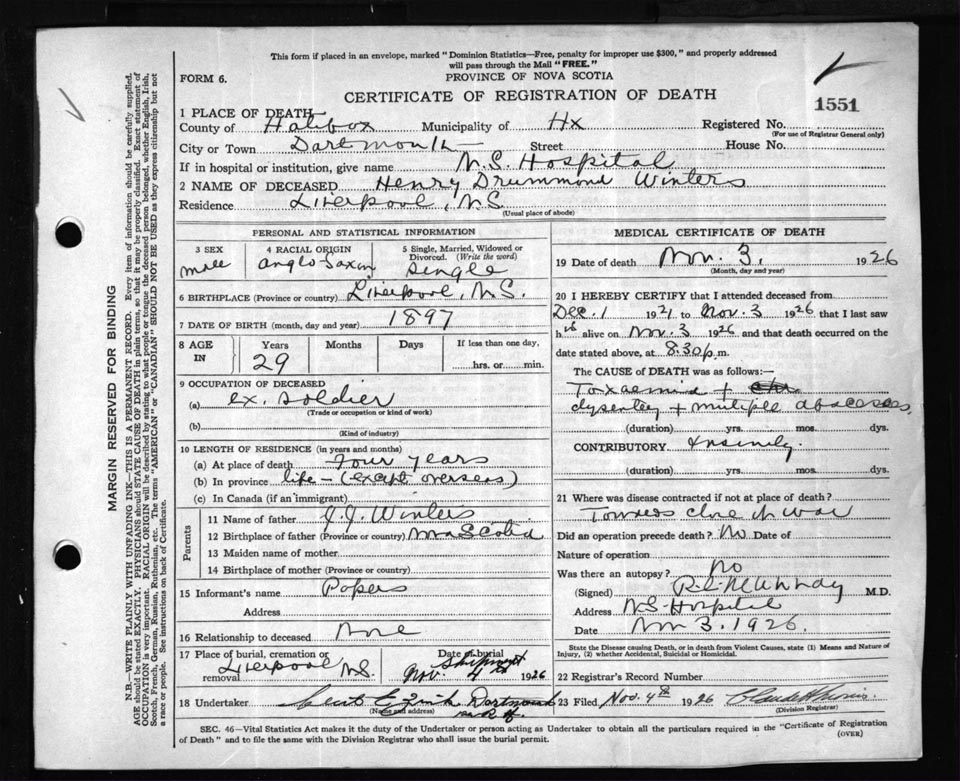 This form if placed in an envelope, marked "Dominion Statistics—Free, penalty for improper use $300," and properly addressed
will pass through the Mail "FREE."
FORM 6.
PROVINCE OF NOVA SCOTIA
CERTIFICATE OF REGISTRATION OF DEATH
1551
1 PLACE OF DEATH—
County of Halifax Municipality of Hx Registered No.
(For use of Registrar General only)
City or Town Dartmouth Street House No.
If in hospital or institution, give name N.S. Hospital
2 NAME OF DECEASED Henry Drummond Winters
Residence Liverpool, N.S.
(Usual place of abode)
PERSONAL AND STATISTICAL INFORMATION
3 SEX
male
4 RACIAL ORIGIN
Anglo Saxon
5 Single, Married, Widowed or
Divorced. (Write the word)
Single
6 BIRTHPLACE (Province or country) Liverpool, N.S.
7 DATE OF BIRTH (month, day and year) 1897
8 AGE
IN
Years
29
Months
Days
If less than one day,
hrs. or min.
9 OCCUPATION OF DECEASED
(a) ex. soldier
(Trade or occupation or kind of work)
(b)
(Kind of industry)
10 LENGTH OF RESIDENCE (in years and months)
(a) At place of death four years
(b) In province life – (except overseas)
(c) In Canada (if an immigrant)
Parents
11 Name of father J.J. Winters
12 Birthplace of father (Province or country) Nova Scotia
13 Maiden name of mother
14 Birthplace of mother (Province or Country)
15 Informant's name Papers
Address
16 Relationship to deceased None
17 Place of burial, cremation or
removal Liverpool N.S.
Date of burial
Shipment
Nov. 4th 1926
18 Undertaker Zink Dartmouth
(Name and address)
MEDICAL CERTIFICATE OF DEATH
19 Date of death Nov. 3, 1926
(Month, day and year)
20 I HEREBY CERTIFY that I attended deceased from
Dec. 1 1921 to Nov. 3 1926 that I last saw
h alive on Nov. 3 1926 and that death occurred on the
date stated above, at 8.30 p.m.
The CAUSE of DEATH was as follows:—
Toxaemia +
dysentery + multiple abscesses
(duration) yrs. mos. dys.
CONTRIBUTORY Insanity.
(duration) yrs. mos. dys.
21 Where was disease contracted if not at place of death?
Towards close of war
Did an operation precede death? No Date of
Nature of operation
Was there an autopsy? No
(Signed) M.D.
Address N.S. Hospital
Date Nov 3. 1926.
State the Disease causing Death, or in death from Violent Causes, state (1) Means and Nature of
Injury, (2) whether Accidental, Suicidal or Homicidal.
22 Registrar's Record Number
23 Filed Nov. 4th 1926
(Division Registrar)
SEC. 46—Vital Statistics Act makes it the duty of the Undertaker or person acting as Undertaker to obtain all the particulars required in the "Certificate of Registration
of Death" and to file the same with the Division Registrar who shall issue the burial permit.
(OVER)
MARGIN RESERVED FOR BINDING
N.B.—WRITE PLAINLY WITH UNFADING INK—THIS IS A PERMANENT RECORD. Every item of information should be carefully supplied.
AGE should be stated EXACTLY. PHYSICIANS should STATE CAUSE OF DEATH in plain terms, so that it may be properly classified. Exact statement of
OCCUPATION is very important. RACIAL ORIGIN will be described by stating to what people or tongue the deceased person belonged, whether English, Irish,
Scotch, French, German, Russian, Ruthenian, etc. The terms "AMERICAN" or "CANADIAN" SHOULD NOT BE USED as they express citizenship but not
a race or people. See instructions on back of Certificate.